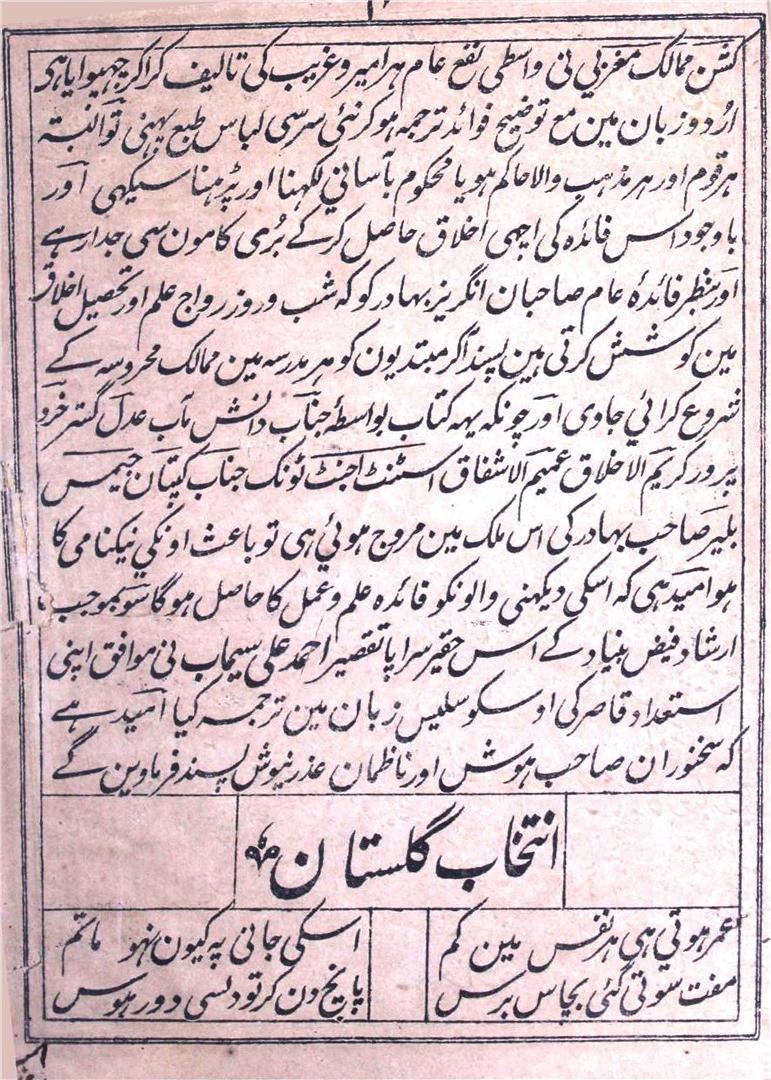 کشن ممالک مغربي ني واسطي نفع عام ہر امیر و غریب کی تالیف کراکر چہپوایا ہی
اردو زبان مین مع توضیح فوائد ترجمہ ہو کر نئی سرسی لباس طبع پہنی تو البتہ
ہر قوم اور ہر مذہب والا حاکم ہو یا محکوم بآساني لکہنا اور پڑہنا سیکہی اور
باوجود اس فائدہ کی اچہی اخلاق حاصل کر کے بُری کامون سی جدا رہے
اور بنظر فائدۂ عام صاحبان انگریز بہادر کو کہ شب و روز رواج علم اور تحصیل اخلاق
مین کوشش کرتی ہین پسند آکر مبتدیون کو ہر مدرسہ مین ممالک محروسہ کے
شروع کرائي جاوی اور چونکہ یہہ کتاب بواسطۂ جناب دانش مآب عدل گستر خرد
پرور کریم الاخلاق عمیم الاشفاق اسٹنٹ اجنٹ ٹونک جناب کپتان جیمس
بلیر صاحب بہادر کی اس ملک مین مروج ہوئي ہی تو باعث اونکي نیکنامی کا
ہو امید ہی کہ اسکی دیکہنی والونکو فائدہ علم و عمل کا حاصل ہوگا سو بموجب
ارشاد فیض بنیاد کے اس حقیر سراپا تقصیر احمد علی سیماب نی موافق اپنی
استعداد قاصر کی اوسکو سلیس زبان مین ترجمہ کیا امید ہے
کہ سخنوران صاحب ہوش اور ناظمان عذر نیوش پسند فرماوین گے
انتخاب گلستان
عمر ہوتي ہي ہر نفس مین کم اسکی جاني پہ کیون نہو ماتم
مفت سوتی گئی پچاس برس پانچ دن کر تو دلسی دور ہوس